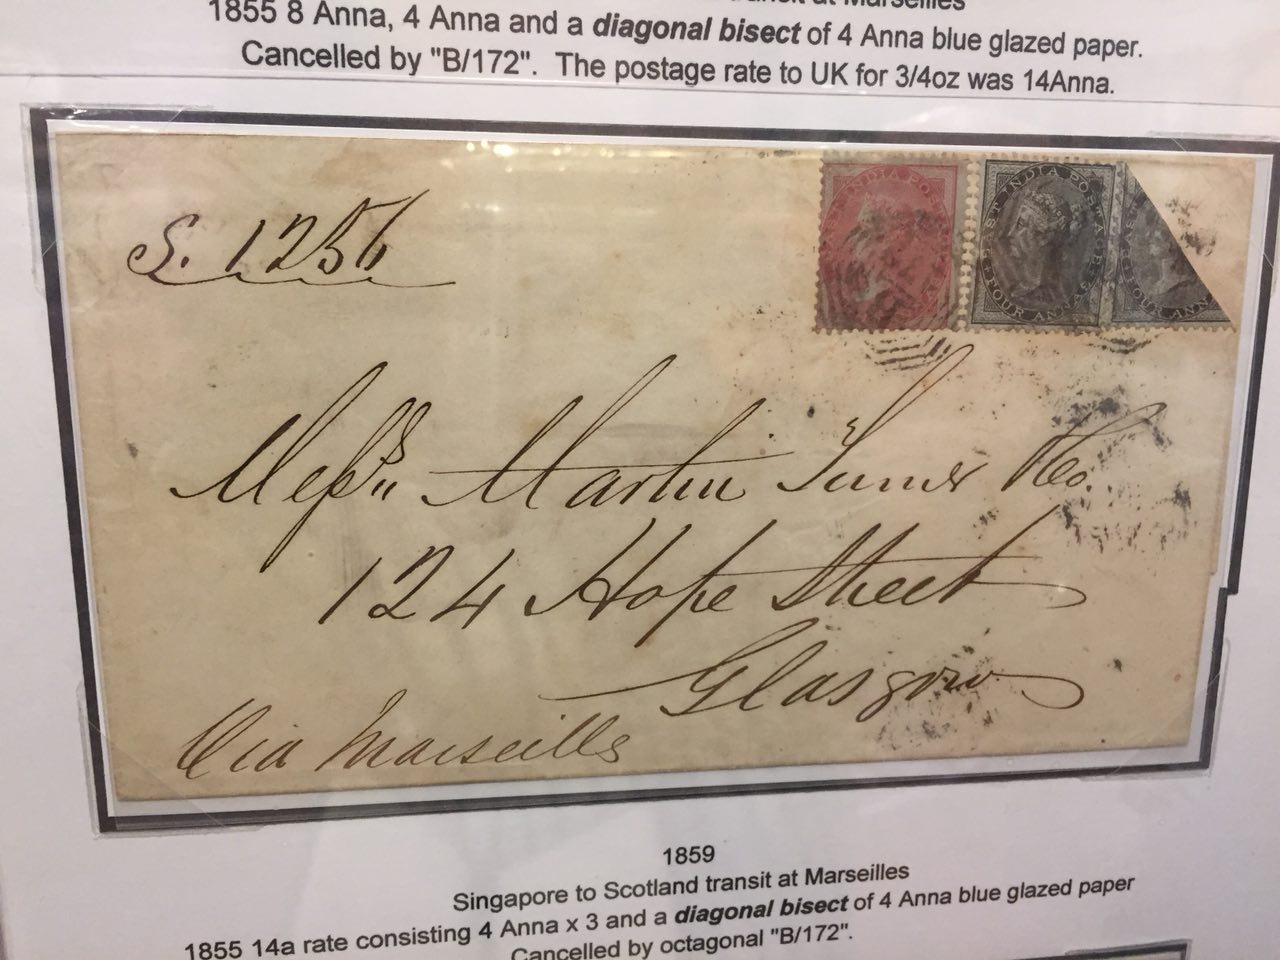 transit at Marseilles
1855 8 Anna, 4 Anna and a diagonal bisect of 4 Anna blue glazed paper.
Cancelled by "B/172". The postage rate to UK for 3/4oz was 14Anna.
INDIA POS
EAST INDIA POSTAGE
FOUR ANNAS
FOUR ANN
S. 1256
Messrs Martin Turner & Co.
124 Hope Street
Glasgow
Via Marseills
1859
Singapore to Scotland transit at Marseilles
1855 14a rate consisting 4 Anna x 3 and a diagonal bisect of 4 Anna blue glazed paper
Cancelled by octagonal "B/172".